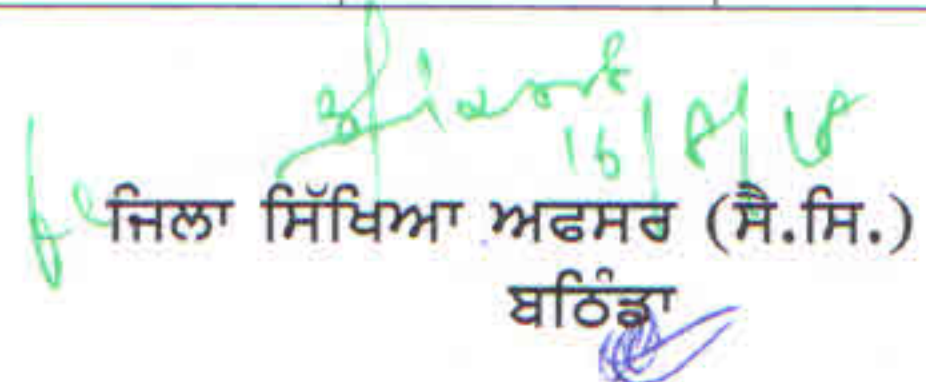 16/8/18
ਜਿਲਾ ਸਿੱਖਿਆ ਅਫਸਰ (ਸੈ.ਸਿ.)
ਬਠਿੰਡਾ